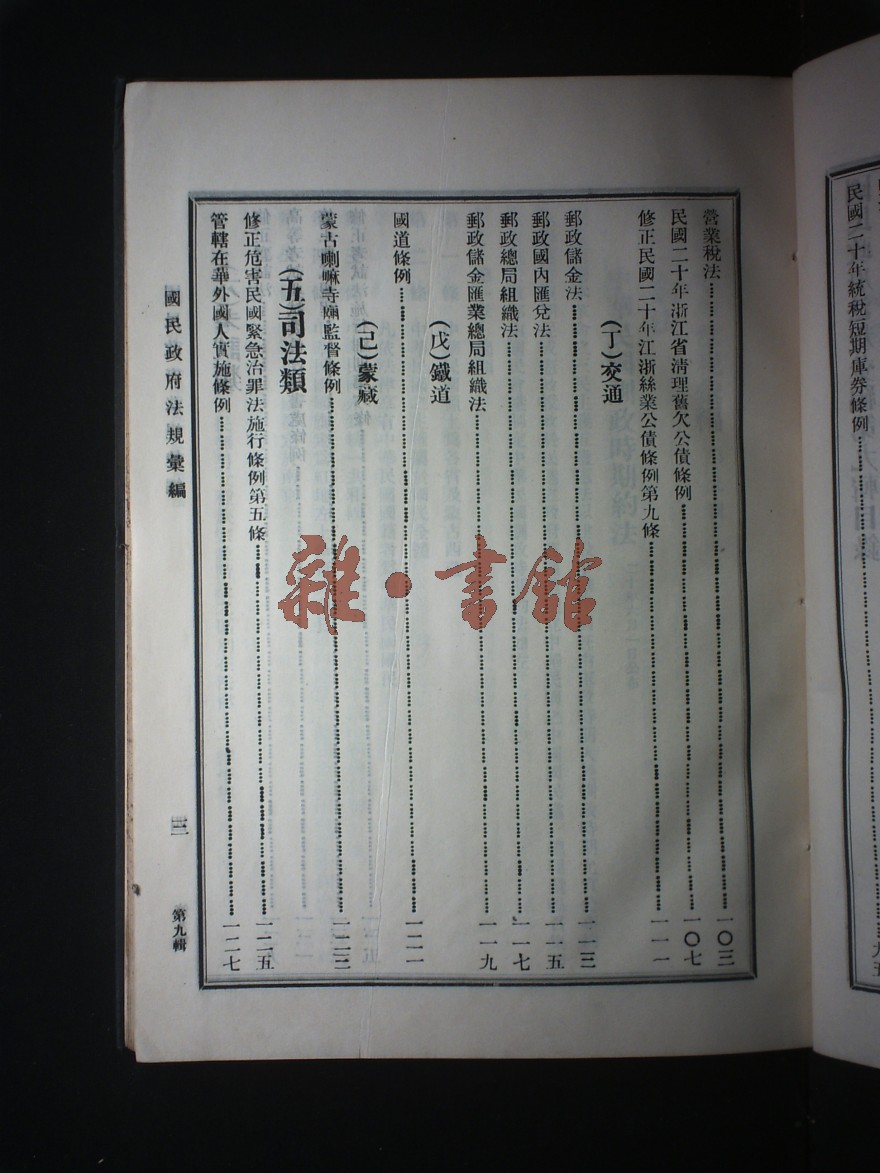 民國二十年統稅短期庫券條例
營業稅法 一〇三
民國二十年浙江省清理舊欠公債條例 一〇七
修正民國二十年江浙絲業公債條例第九條 一一一
(丁)交通
郵政儲金法 一一三
郵政國內匯兌法 一一五
郵政總局組織法 一一七
郵政儲金匯業總局組織法 一一九
(戊)鐵道
國道條例 一二一
(己)蒙藏
蒙古喇嘛寺廟監督條例 一二三
(五)司法類
修正危害民國緊急治罪法施行條例第五條 一二五
管轄在華外國人實施條例 一二七
國民政府法規彙編
三
第九輯
雜·書館